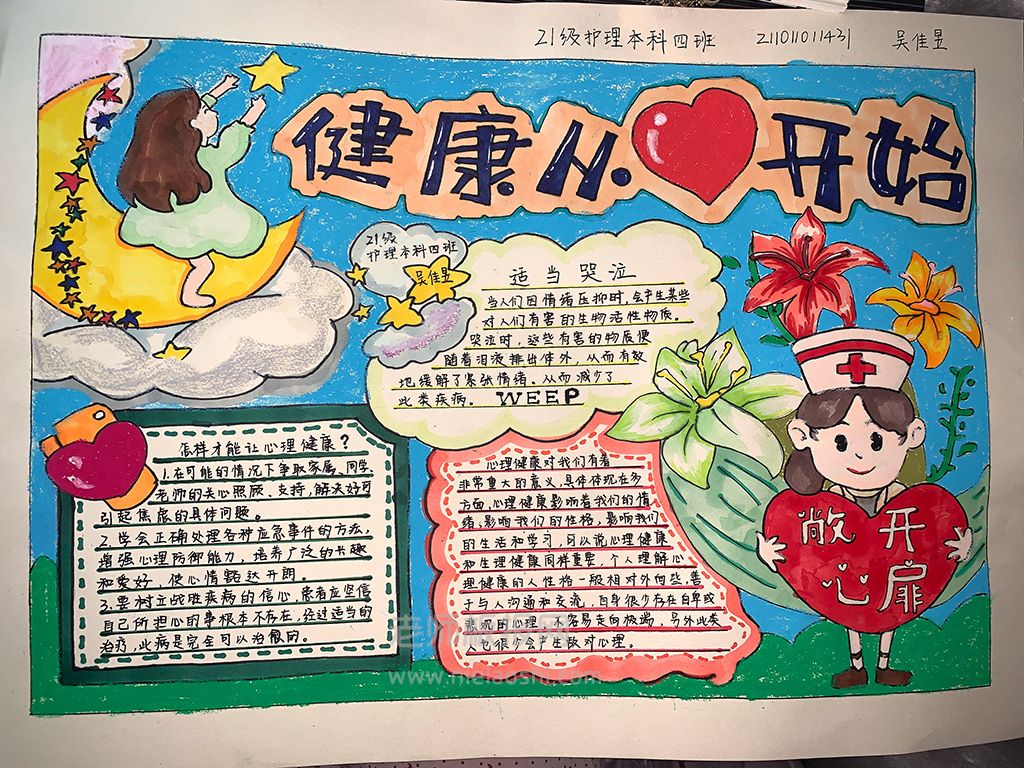 21级护理本科四班 211011011431 吴佳昱
健康从❤开始
21级
护理本科四班
吴佳昱
适当哭泣
当人们因情绪压抑时,会产生某些
对人们有害的生物活性物质。
哭泣时,这些有害的物质便
随着泪液排出体外,从而有效
地缓解了紧张情绪。从而减少了
此类疾病。WEEP
怎样才能让心理健康?
1.在可能的情况下争取家属、同学、
老师的关心照顾、支持,解决好可
引起焦虑的具体问题。
2.学会正确处理各种应急事件的方法,
增强心理防御能力,培养广泛的书趣
和爱好,使心情豁达开朗。
3.要树立战胜疾病的信心,患者应坚信
自己所担心的事根本不存在,经过适当的
治疗,此病是完全可以治愈的。
心理健康对我们有着
非常重大的意义,具体体现在多
方面,心理健康影响着我们的情
绪,影响我们的性格,影响我们
的生活和学习,可以说心理健康
和生理健康同样重要,个人理解心
理健康的人性格一般相对外向些,善
于与人沟通和交流,自身很少存在自卑或
悲观的心理,容易走向极端,另外此类
人也很少会产生敌对心理。
敞开
心扉